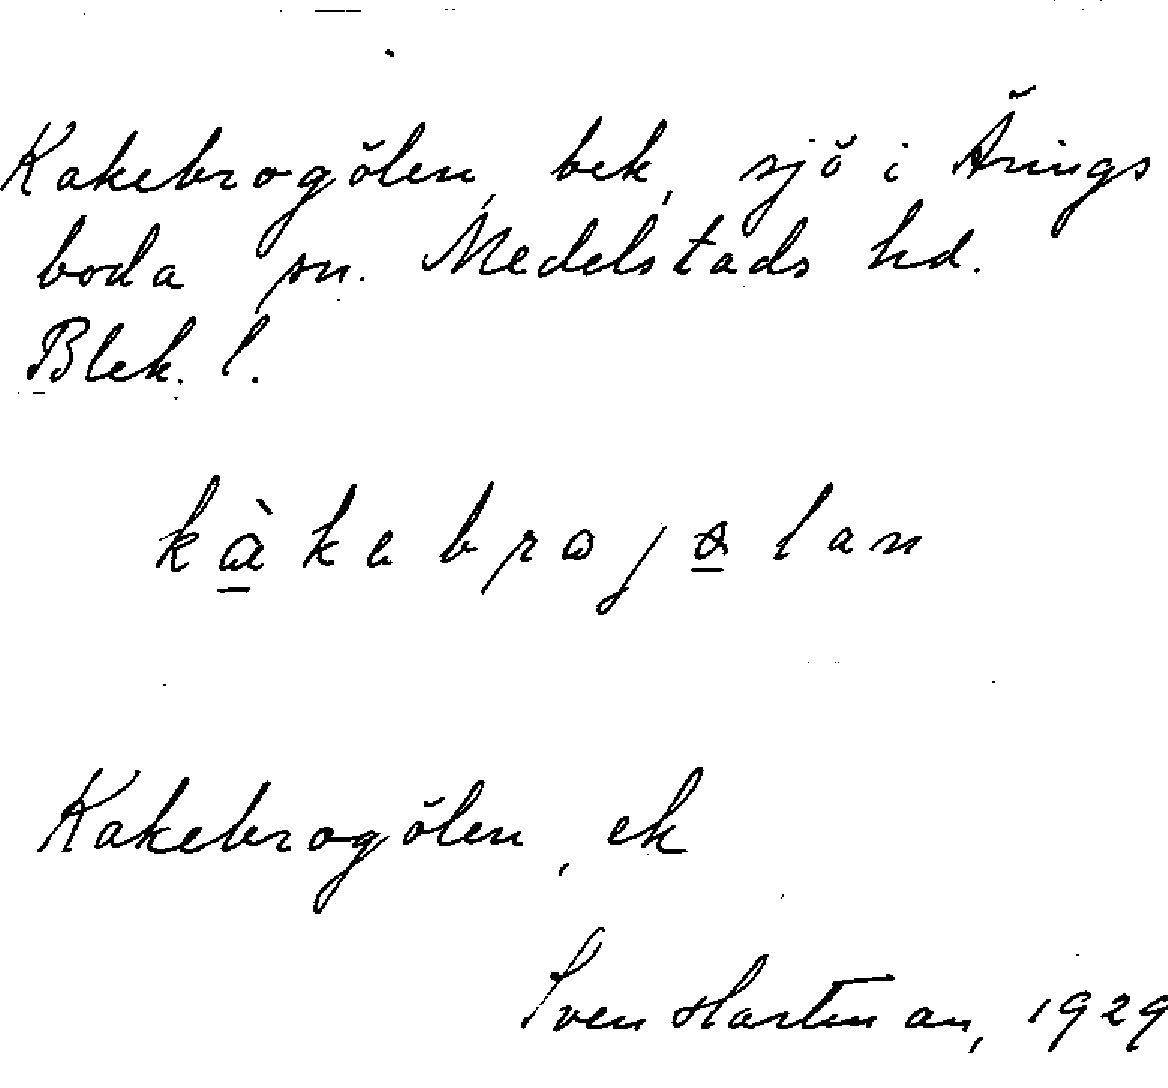 Kakebrogölen, bek, sjö i Ärings
boda sn. Medelstads hd.
Blek. l.
kàkebrojølan
Kakebrogölen, ek
Sven Hartman, 1929